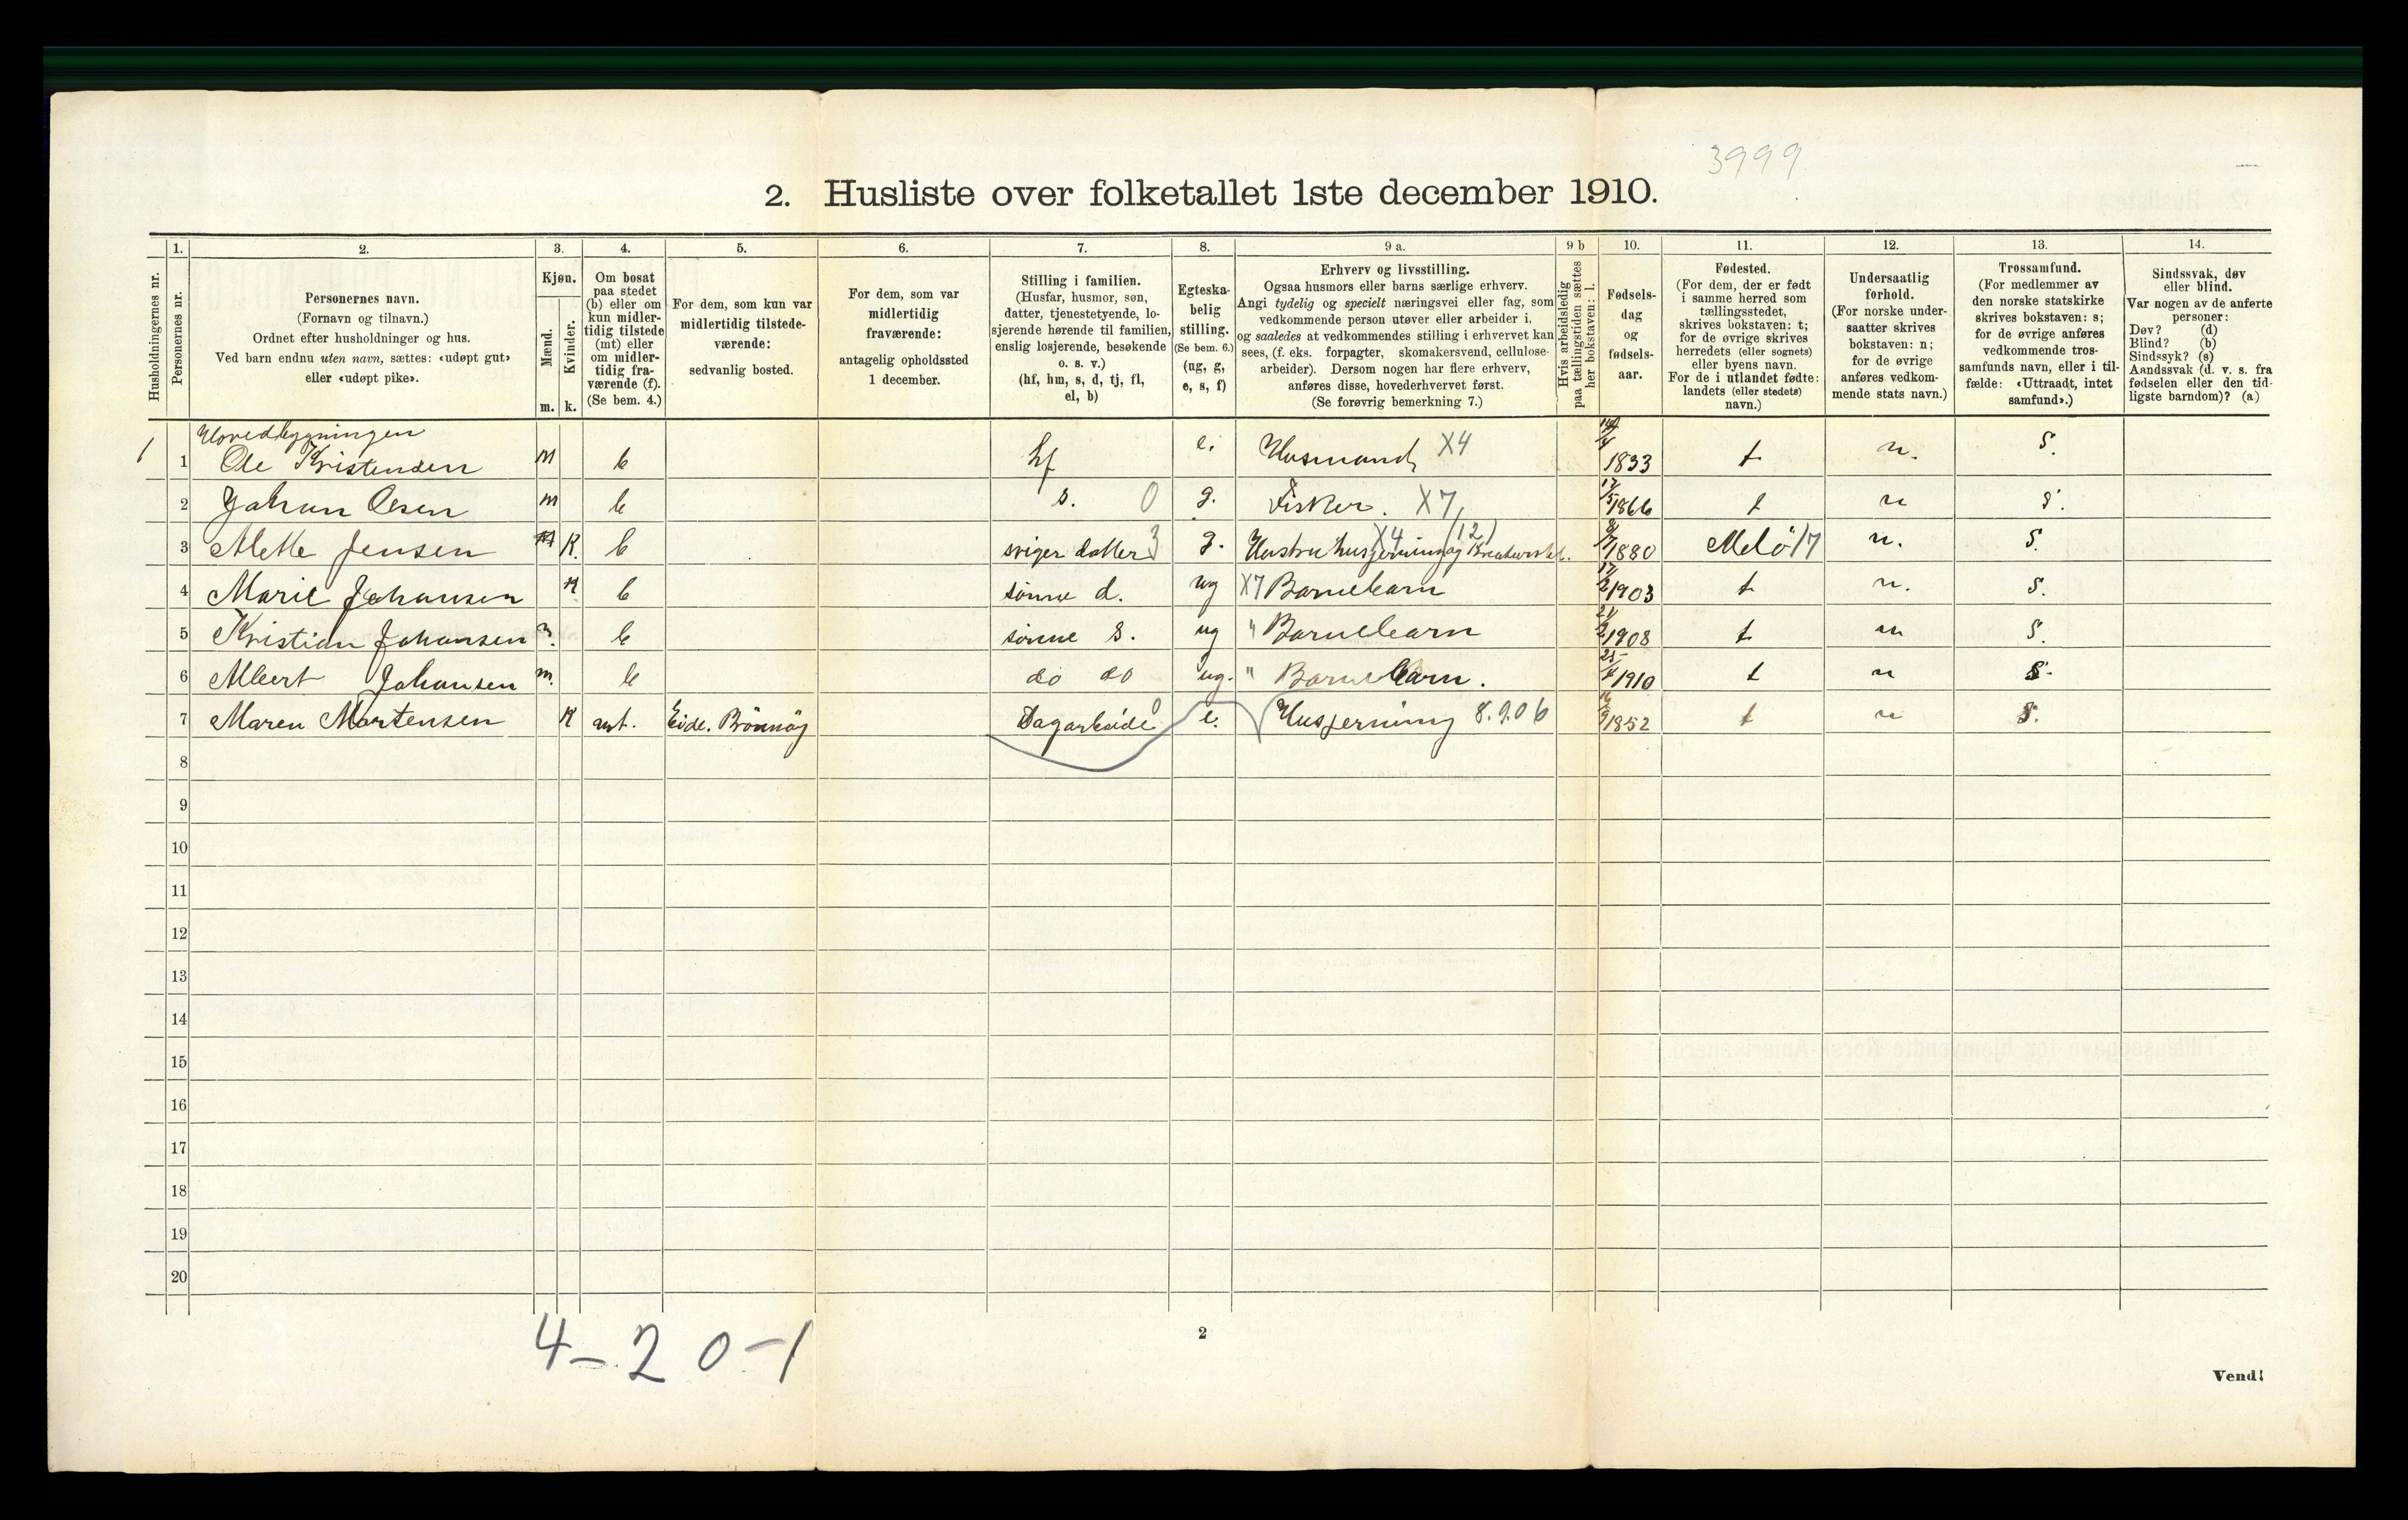 3999
2. Husliste over folketallet 1ste december 1910.
Husholdningernes nr.
1.
Personernes nr.
2.
Personernes navn.
(Fornavn og tilnavn.)
Ordnet efter husholdninger og hus.
Ved barn endnu uten navn, sættes: «udøpt gut»
eller «udøpt pike».
3.
Kjøn.
Mænd.
Kvinder.
m. k.
4.
Om bosat
paa stedet
(b) eller om
kun midler-
tidig tilstede
(mt) eller
om midler-
tidig fra-
værende (f).
(Se bem. 4.)
5.
For dem, som kun var
midlertidig tilstede-
værende:
sedvanlig bosted.
6.
For dem, som var
midlertidig
fraværende:
antagelig opholdssted
1 december.
7.
Stilling i familien.
(Husfar, husmor, søn,
datter, tjenestetyende, lo-
sjerende hørende til familien,
enslig losjerende, besøkende
o. s. v.)
(hf, hm, s, d, tj, fl,
el, b)
8.
Egteska-
belig
stilling.
(Se bem. 6.)
(ug, g,
e, s, f)
9 a.
Erhverv og livsstilling.
Ogsaa husmors eller barns særlige erhverv.
Angi tydelig og specielt næringsvei eller fag, som
vedkommende person utøver eller arbeider i,
og saaledes at vedkommendes stilling i erhvervet kan
sees, (f. eks. forpagter, skomakersvend, cellulose-
arbeider). Dersom nogen har flere erhverv,
anføres disse, hovederhvervet først.
(Se forøvrig bemerkning 7.)
9 b
Hvis arbeidsledig
paa tællingstiden sættes
her bokstaven: l.
10.
Fødsels-
dag
og
fødsels-
aar.
11.
Fødested.
(For dem, der er født
i samme herred som
tællingsstedet,
skrives bokstaven: t;
for de øvrige skrives
herredets (eller sognets)
eller byens navn.
For de i utlandet fødte:
landets (eller stedets)
navn.)
12.
Undersaatlig
forhold.
(For norske under-
saatter skrives
bokstaven: n;
for de øvrige
anføres vedkom-
mende stats navn.)
13.
Trossamfund.
(For medlemmer av
den norske statskirke
skrives bokstaven: s;
for de øvrige anføres
vedkommende tros-
samfunds navn, eller i til-
fælde: «Uttraadt, intet
samfund».)
14.
Sindssvak, døv
eller blind.
Var nogen av de anførte
personer:
Døv? (d)
Blind? (b)
Sindssyk? (s)
Aandssvak (d. v. s. fra
fødselen eller den tid-
ligste barndom)? (a)
Hovedbygningen
1 1 Ole Kristensen m b hf e. Husmand X4 1833 t n. S.
2 Johan Olsen m b s. 0 g. Fisker. X7 17/5 1866 t n S.
3 Mette Jensen K. b sviger datter 3 g. Hustru husgjerning og X4 (12) 1880 Melö 17 n. S.
4 Marie Johansen K b sönne d. ug X7 Barnebarn 17/2 1903 t n. S.
5 Kristian Johansen m. b sönne s. ug " Barnebarn 21/2 1908 t n S.
6 Albert Johansen m. b do do ug. " Barnebarn. 1910 t n S.
7 Maren Mortensen K mt. Eide. Brönnöy 0 e. Husgerning 8.9.06 1852 t n S.
8
9
10
11
12
13
14
15
16
17
18
19
20
4 - 2 0 - 1
2
Vend!